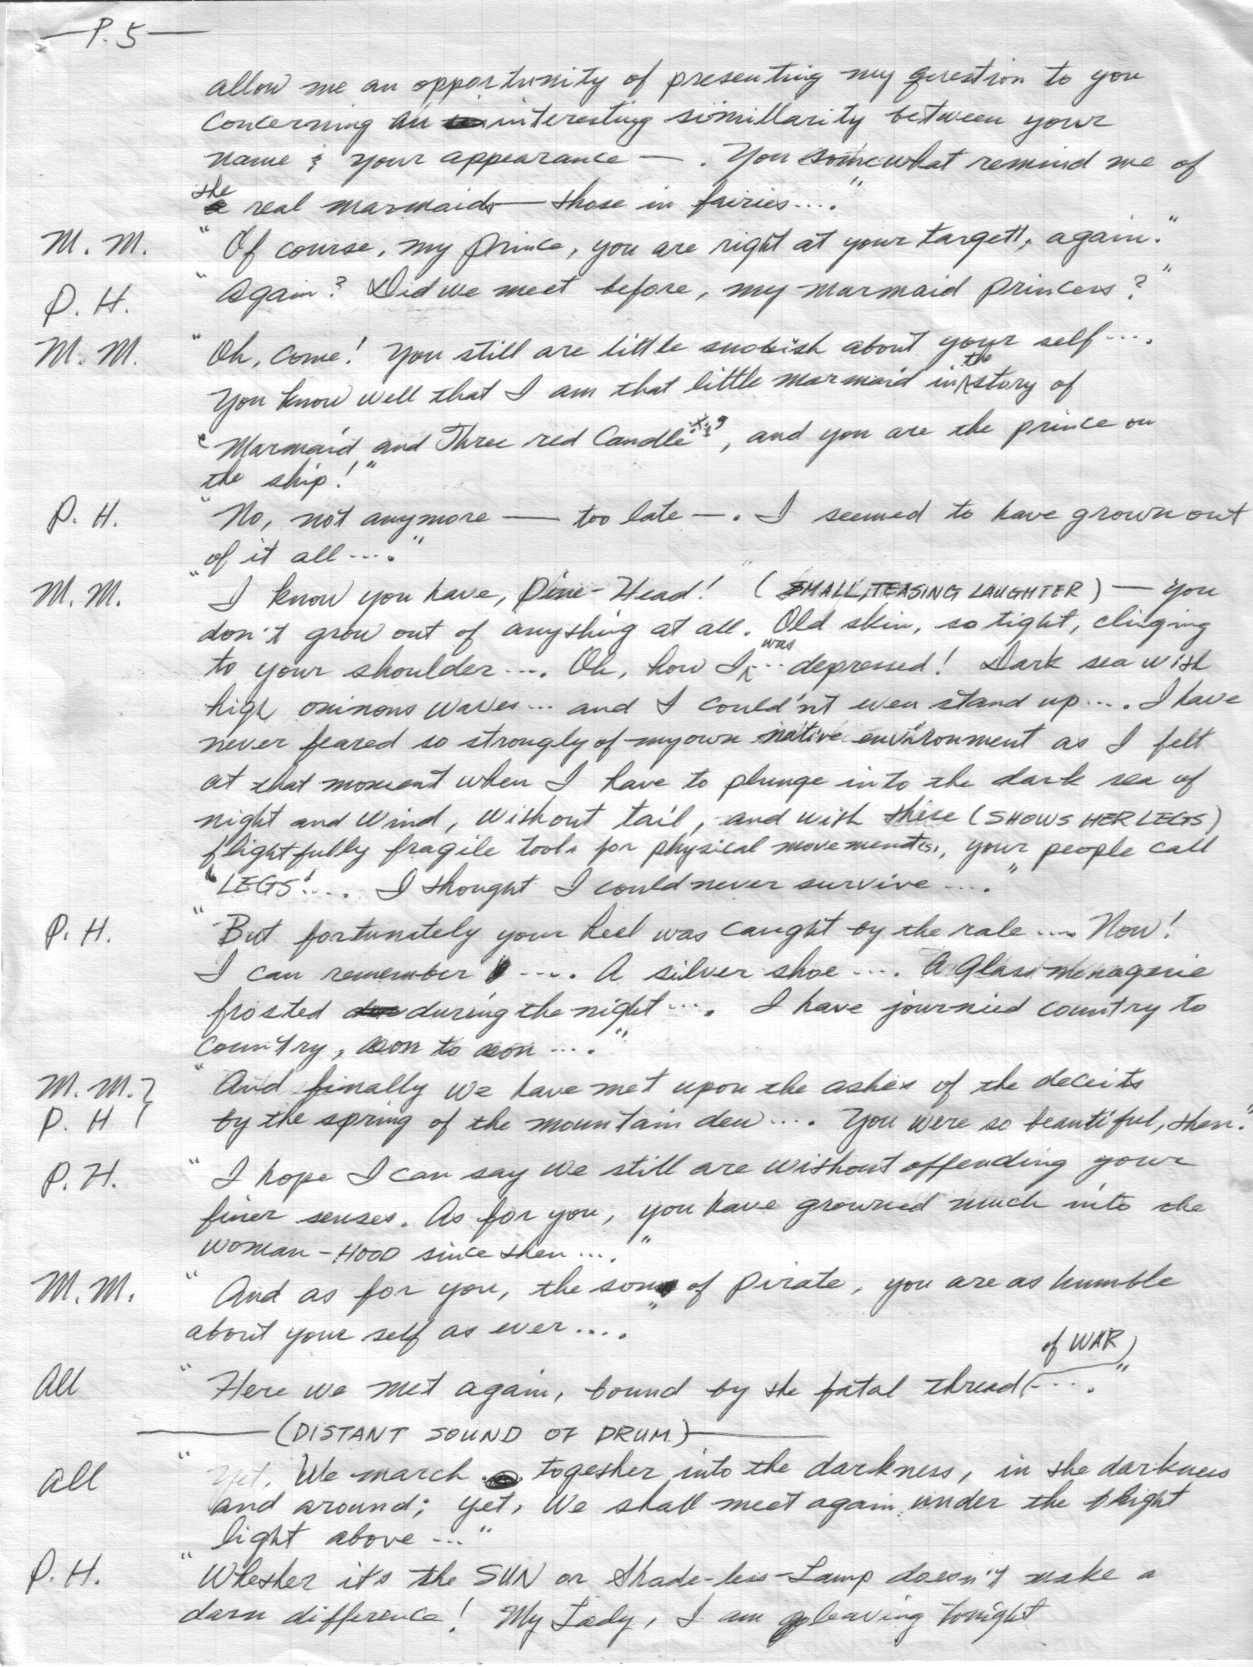 —P. 5—
allow me an opportunity of presenting my question to you
concerning an interesting simillarity between your
name & your appearance — . You somewhat remind me of
the real marmaids — those in fairies...."
M. M. "Of course, my prince, you are right at your targett, again."
P. H. "Again? Did we meet before, my marmaid princess?"
M. M. "Oh, come! You still are little snobish about your self....
You know well that I am that little marmaid in the story of
"Marmaid and Three red Candle", and you are the prince on
the ship!"
P. H. "No, not anymore — too late — . I seemed to have grown out
of it all...."
M. M. "I know you have, Pine-Head! (SMALL, TEASING LAUGHTER) — you
don't grow out of anything at all. Old skin, so tight, clinging
to your shoulder.... Oh, how I was... depressed! Dark sea with
high ominous waves... and I could'nt even stand up.... I have
never feared so strongly of my own native environment as I felt
at that moment when I have to plunge into the dark sea of
night and wind, without tail, and with these (SHOWS HER LEGS)
flightfully fragile tools for physical movement(s), your people call
"LEGS".... I thought I could never survive...."
P. H. "But fortunately your heel was caught by the rale.... Now!
I can remember .... A silver shoe.... A Glass menagerie
frosted during the night.... I have journied country to
country, aeon to aeon...."
M. M. } "And finally we have met upon the ashes of the deceits
P. H } by the spring of the mountain dew.... You were so beautiful, then."
P. H. "I hope I can say we still are without offending your
finer senses. As for you, you have growned much into the
woman-HOOD since then...."
M. M. "And as for you, the son of pirate, you are as humble
about your self as ever...."
of WAR)
All "Here we met again, bound by the fatal thread(...."
—(DISTANT SOUND OF DRUM)—
All "Yet, We march together into the darkness, in the darkness
and around; yet, we shall meet again under the bright
light above..."
P. H. "Whether it's the SUN or Shade-less-Lamp doesn't make a
darn difference! My Lady, I am leaving tonight